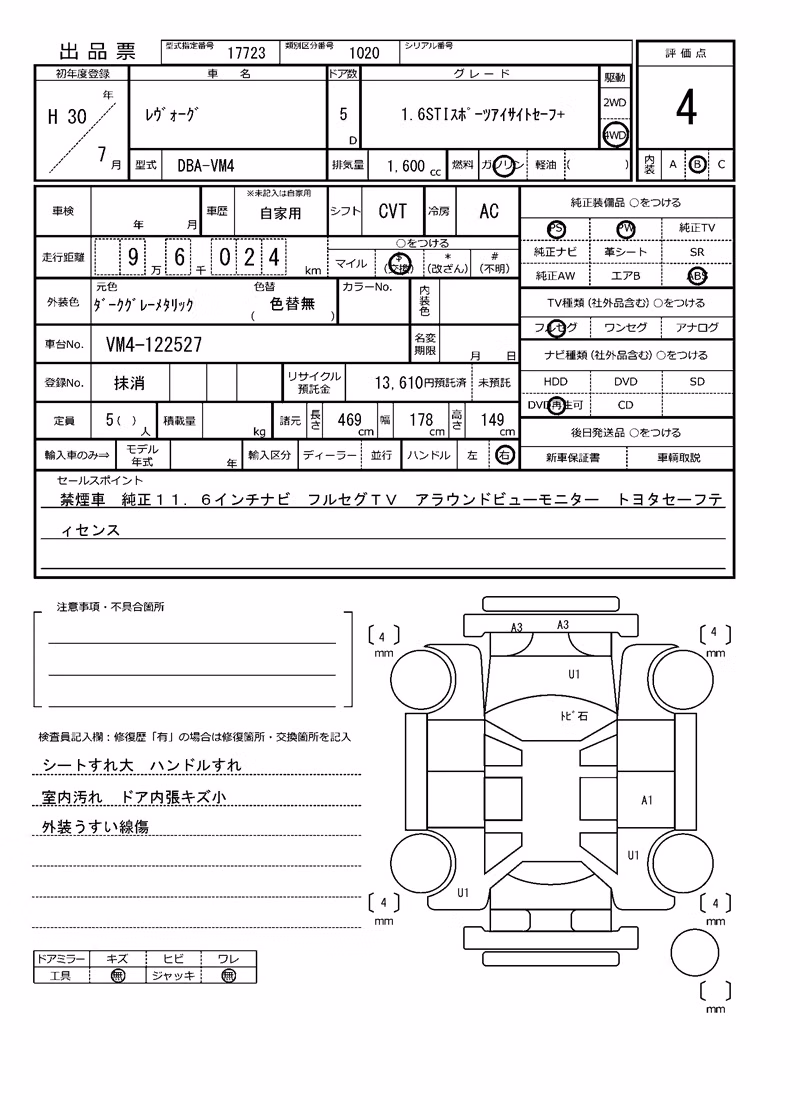 出品票 型式指定番号 17723 類別区分番号 1020 シリアル番号
評価点
4
内装 A B C
初年度登録 車名 ドア数 グレード 駆動
H 30 年 7 月 ﾚｳﾞｫｰｸﾞ 5 D 1.6STIｽﾎﾟｰﾂｱｲｻｲﾄｾｰﾌ+ 2WD 4WD
型式 DBA-VM4 排気量 1,600 cc 燃料 ガソリン 軽油 ( )
車検 年 月 車歴 ※未記入は自家用 自家用 シフト CVT 冷房 AC
走行距離 9万6千024 km ○をつける マイル $(交換) *(改ざん) #(不明)
外装色 元色 ﾀﾞｰｸｸﾞﾚｰﾒﾀﾘｯｸ 色替 ( 色替無 ) カラーNo. 内装色
車台No. VM4-122527 名変期限 月 日
登録No. 抹消 リサイクル預託金 13,610円預託済 未預託
定員 5( )人 積載量 kg 諸元 長さ 469cm 幅 178cm 高さ 149cm
輸入車のみ⇒ モデル年式 年 輸入区分 ディーラー 並行 ハンドル 左 右
純正装備品 ○をつける
PS PW 純正TV
純正ナビ 革シート SR
純正AW エアB ABS
TV種類(社外品含む)○をつける
フルセグ ワンセグ アナログ
ナビ種類(社外品含む)○をつける
HDD DVD SD
DVD再生可 CD
後日発送品 ○をつける
新車保証書 車輌取説
セールスポイント
禁煙車 純正11.6インチナビ フルセグTV アラウンドビューモニター トヨタセーフテ
ィセンス
注意事項・不具合箇所
検査員記入欄:修復歴「有」の場合は修復箇所・交換箇所を記入
シートすれ大 ハンドルすれ
室内汚れ ドア内張キズ小
外装うすい線傷
ドアミラー キズ ヒビ ワレ
工具 無 ジャッキ 無
A3 A3
[4] mm [4] mm
U1
ﾄﾋﾞ石
A1
U1
U1
[4] mm [4] mm
[ ] mm